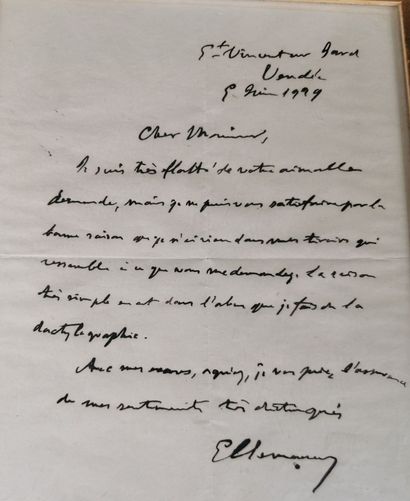 St Vincent sur Jard
Vendée
6 Juin 1929
Cher Monsieur,
Je suis très flatté de votre aimable
demande, mais je ne puis vous satisfaire par la
bonne raison que je n'ai rien dans mes tiroirs qui
ressemble à ce que vous me demandez. La raison
très simple en est dans l'abus que je fais de la
dactylographie.
Avec mes excuses, agréez, je vous prie, l'assurance
de mes sentiments très distingués
GClemenceau